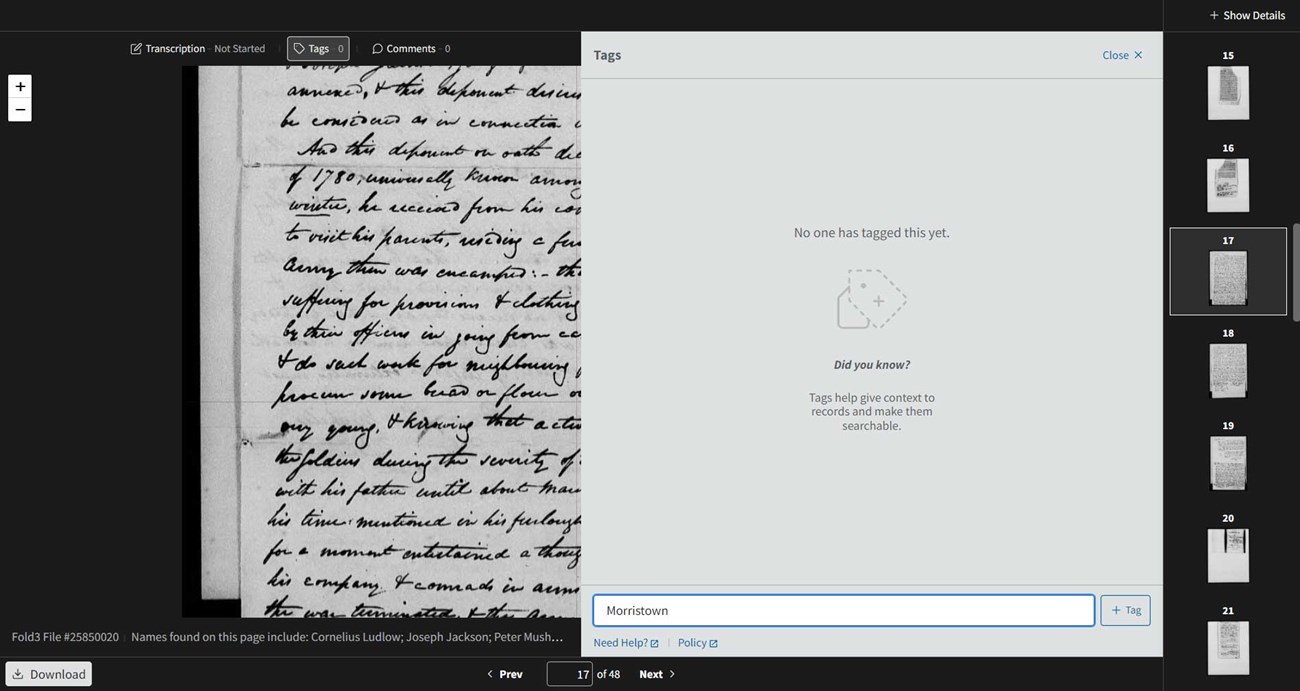 + Show Details
Transcription - Not Started
Tags - 0
Comments - 0
+
−
annexed, & this deponent
be considered as in connection
And this deponent on oath
of 1780, universally known among
winter, he received from his
to visit his parents, residing a
Army then was encamped:- 
suffering for provisions & clothing
by their officers in going from
& do such work for neighbouring
procure some bread or flour
very young, & knowing that
the soldiers during the severity of
with his father until about
his time mentioned in his furlough
for a moment entertained a
his company & comrads in arms
the war was terminated, & this
Fold3 File #25850020 | Names found on this page include: Cornelius Ludlow; Joseph Jackson; Peter Mush...
Download
Prev
17 of 48
Next
Tags
Close ×
No one has tagged this yet.
Did you know?
Tags help give context to
records and make them
searchable.
Morristown
+ Tag
Need Help?
Policy
15
16
17
18
19
20
21